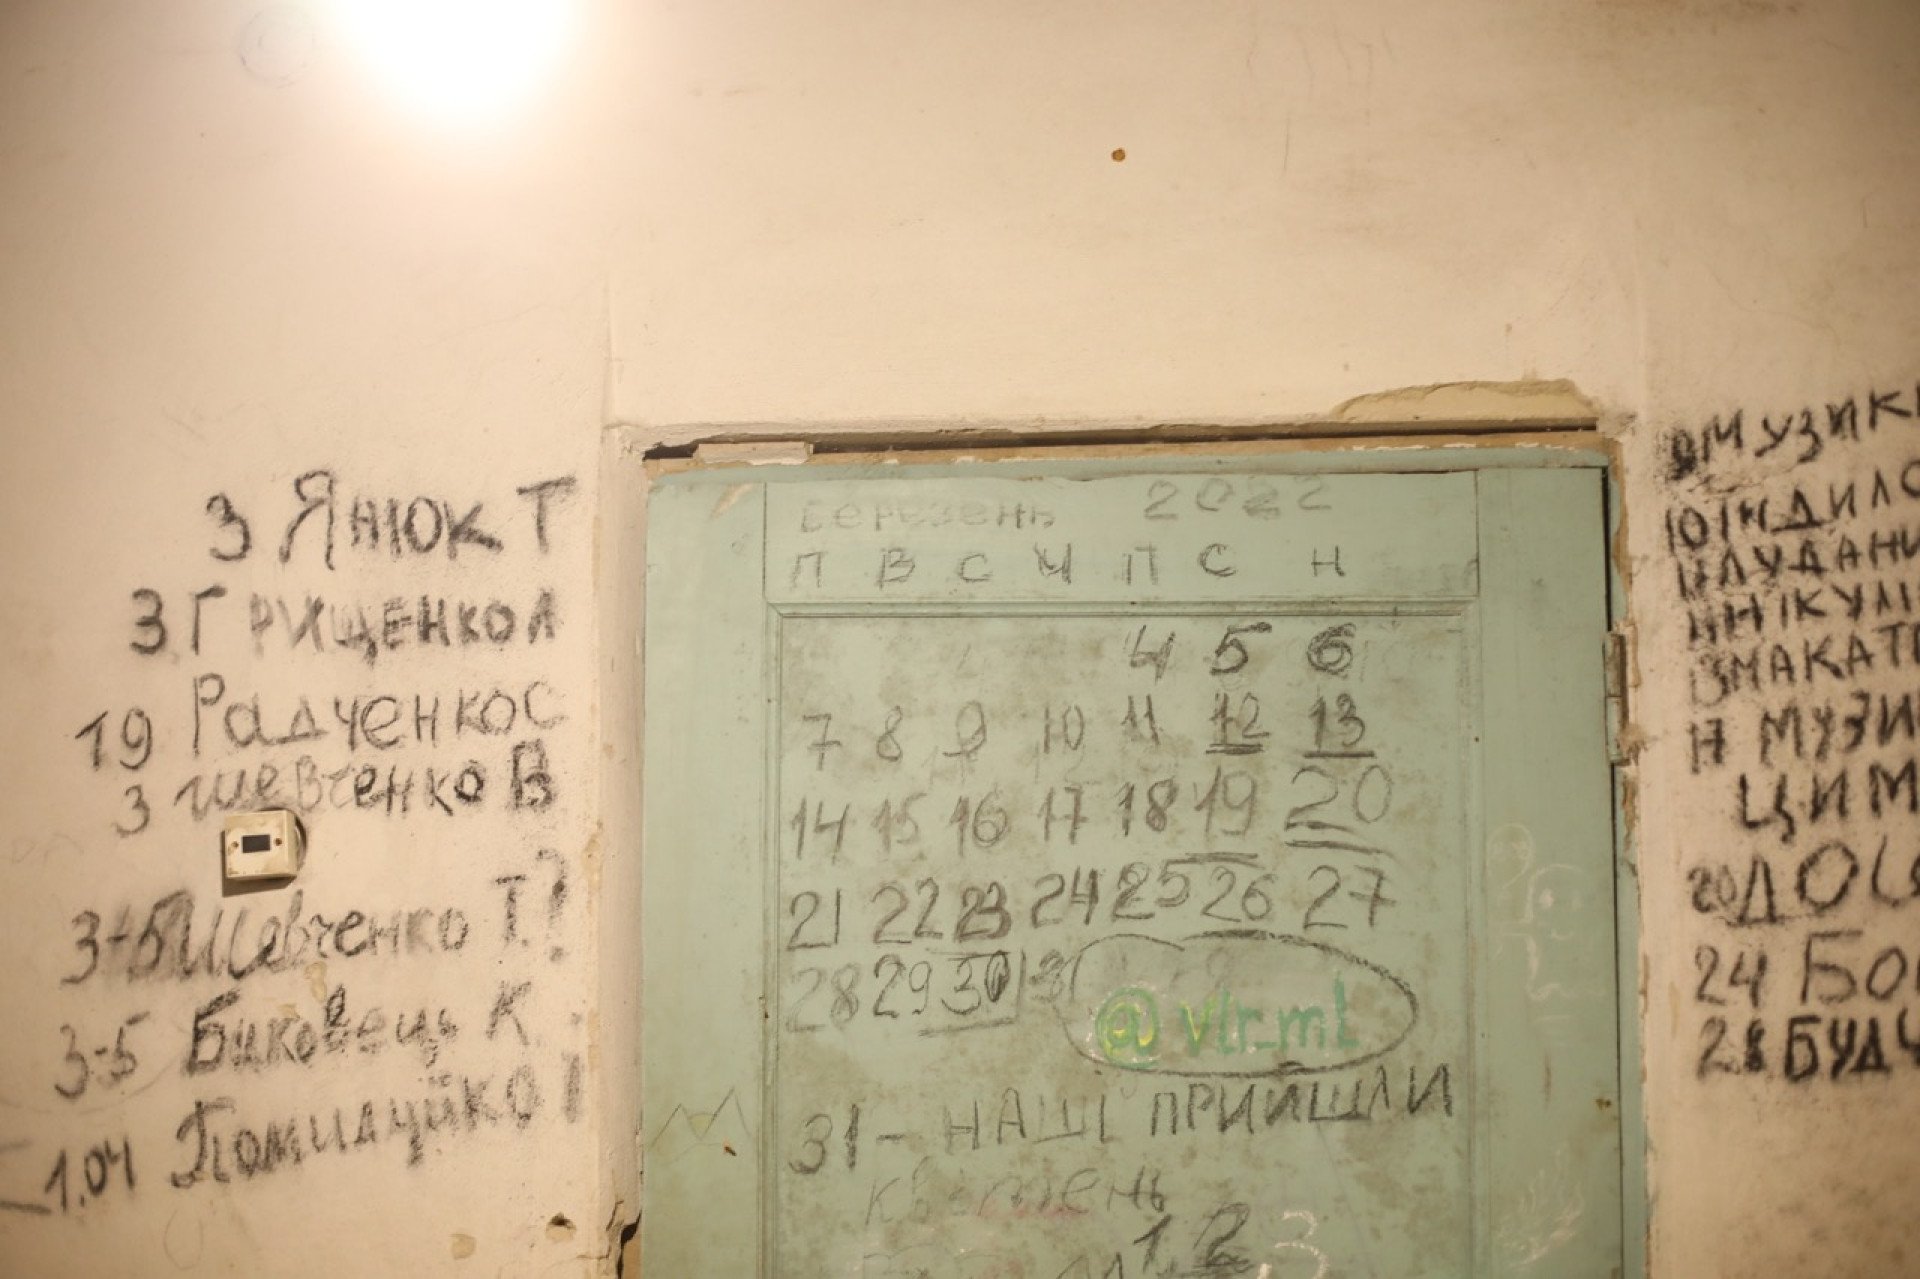 3 Янюк Т
3 Грищенко Л
19 Радченко С
3 Шевченко В
3-5 Шевченко Т.?
3-5 Биковець К
1.04 Помилуйко І
Березень 2022
П В С Ч П С Н
4 5 6
7 8 9 10 11 12 13
14 15 16 17 18 19 20
21 22 23 24 25 26 27
28 29 30 3
@vlr.ml
31 - НАШІ ПРИЙШЛИ
квітень
1 2 3
9 МУЗИК
10 ІНДИЛО
11 ЛУДАН
11 НІКУЛ
13 МАКАТ
17 МУЗИ
ЦИМ
20 ДОС
24 БО
28 БУДЧ